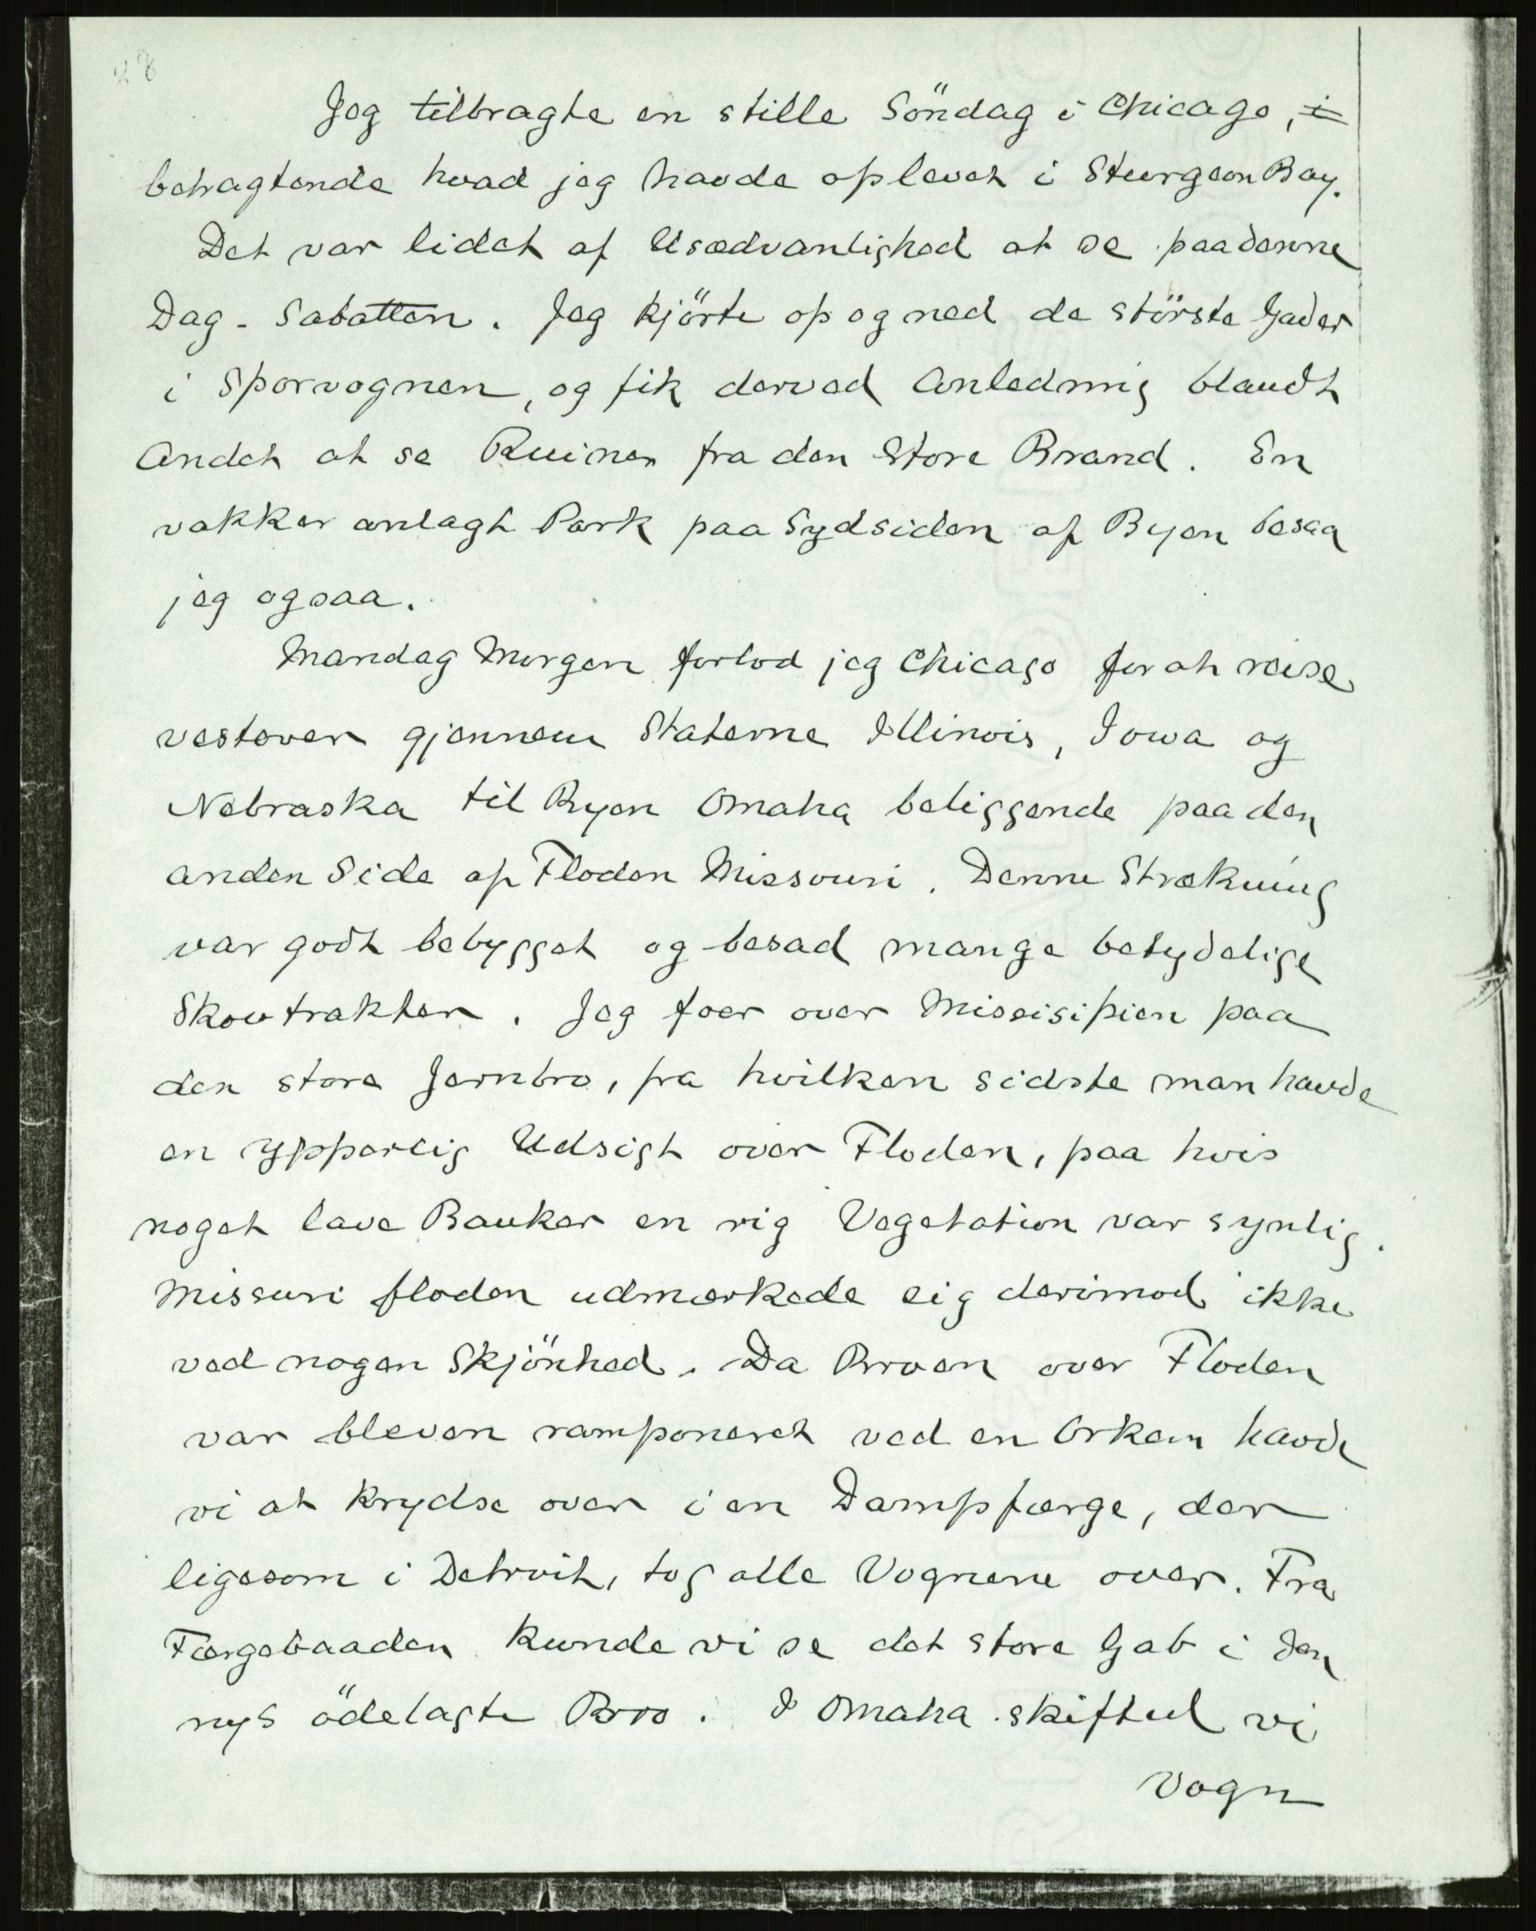 28
Jeg tilbragte en stille Söndag i Chicago, i
betragtende hvad jeg havde oplevet i Sturgeon Bay.
Det var lidet af Usædvanlighed at se paa denne
Dag - Sabatten. Jeg kjörte op og ned de störste Gader
i Sporvognen, og fik derved Anledning blandt
Andet at se Ruiner fra den Store Brand. En
vakker anlagt Park paa Sydsiden af Byen besaa
jeg ogsaa.
Mandag Morgen forlod jeg Chicago for at reise
vestover gjennem Staterne Illinois, Iowa og
Nebraska til Byen Omaha beliggende paa den
anden Side af Floden Missouri. Denne Strækning
var godt bebygget og besad mange betydelige
Skovtrakter. Jeg foer over Missisipien paa
den store Jernbro, fra hvilken sidste man havde
en ypperlig Udsigt over Floden, paa hvis
noget lave Banker en rig Vegetation var synlig.
Missuri floden udmærkede sig derimod ikke
ved nogen Skjönhed. Da Broen over Floden
var bleven ramponeret ved en Orkan havde
vi at krydse over i en Dampfærge, der
ligesom i Detroit, tog alle Vognene over. Fra
Færgebaaden kunde vi se det store Gab i den
nys ödelagte Bro. I Omaha skifted vi
Vogn